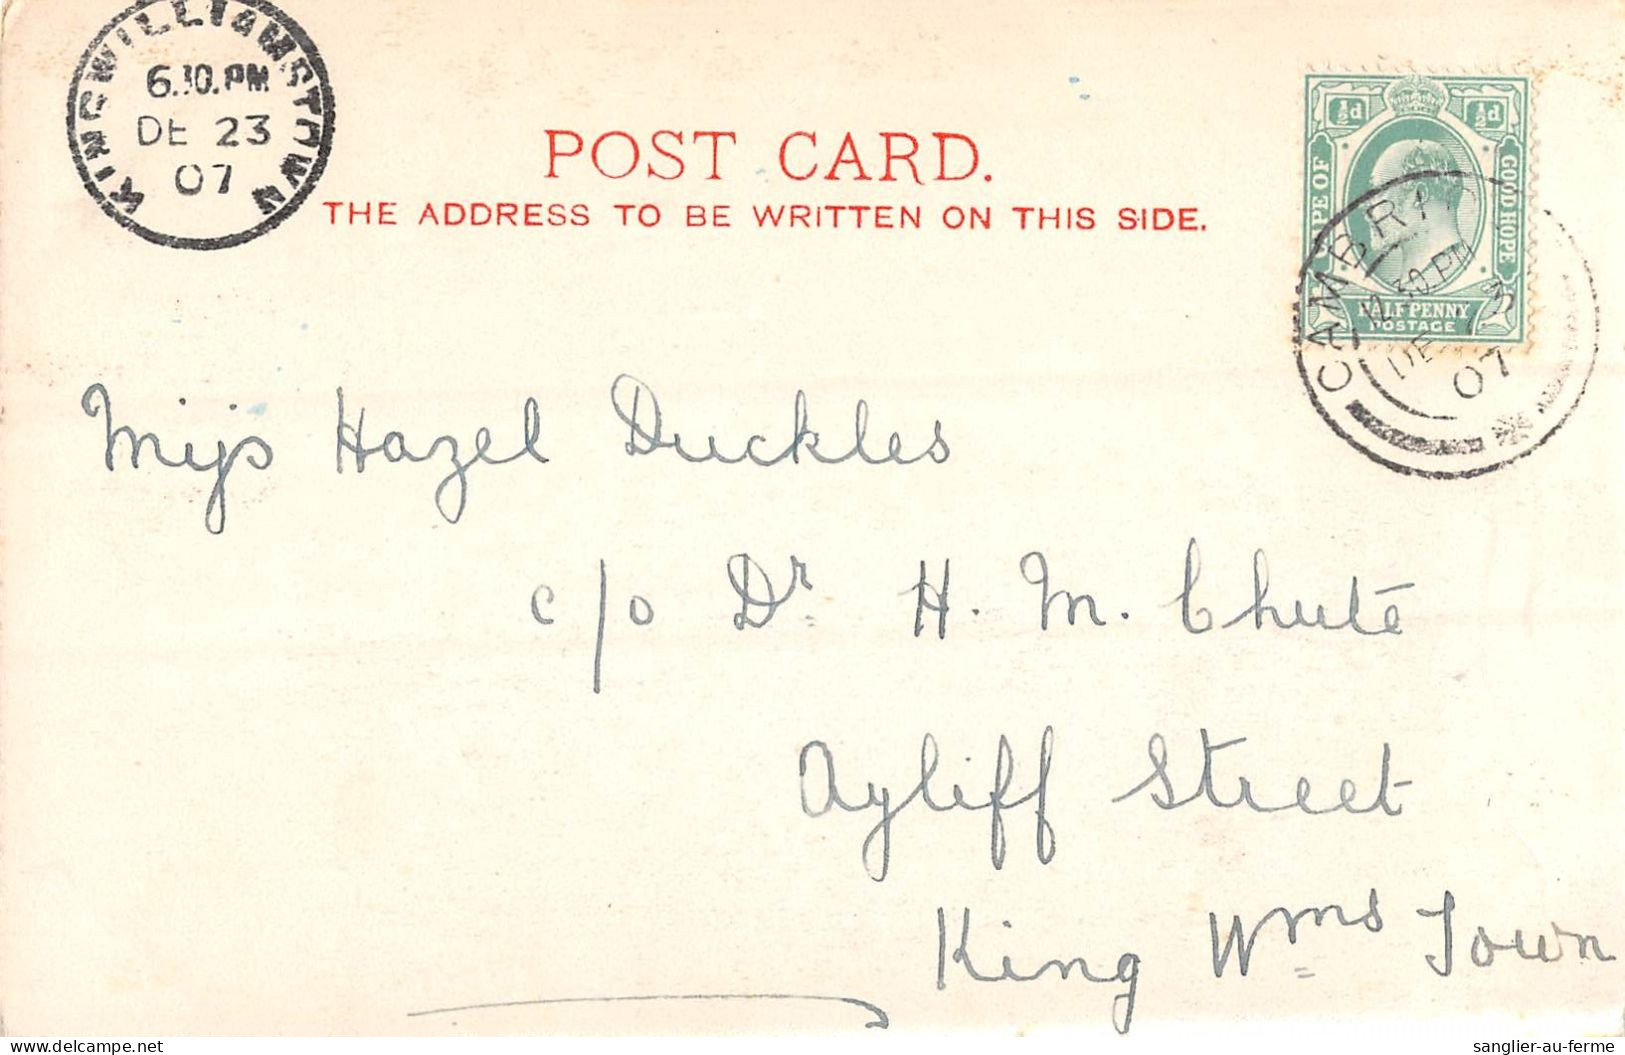 KINGWILLIAMSTOWN
6.30.PM
DE 23
07
POST CARD.
THE ADDRESS TO BE WRITTEN ON THIS SIDE.
½d ½d
GOOD HOPE
HALFPENNY
POSTAGE
12.30.PM
DE 23
07
Miss Hazel Duckles
c/o Dr H. M. Chute
Ayliff Street
King Wms Town
www.delcampe.net
sanglier-au-ferme